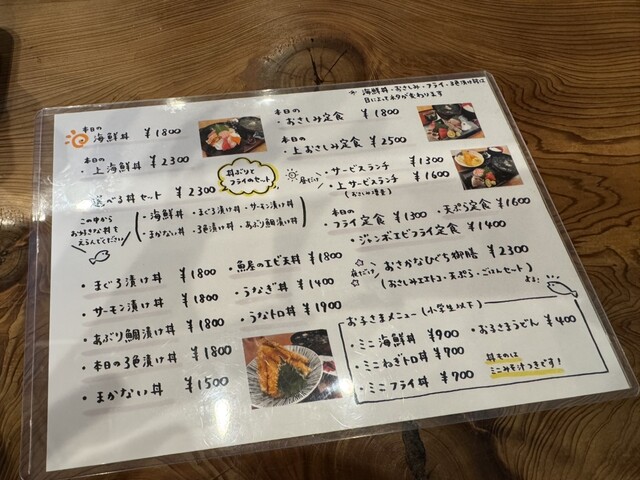 * 海鮮丼・おさしみ・フライ・3色漬け丼は
日によってネタが変わります
本日の
海鮮丼 ¥1800
本日の
・上海鮮丼 ¥2300
選べる丼セット ¥2300
丼ぶりと
フライのセット
この中から
お好きな丼を
えらんでください
・海鮮丼 ・まぐろ漬け丼 ・サーモン漬け丼
・まかない丼 ・3色漬け丼 ・あぶり鯛漬け丼
・まぐろ漬け丼 ¥1800
・サーモン漬け丼 ¥1800
・あぶり鯛漬け丼 ¥1800
・本日の3色漬け丼 ¥1800
・まかない丼 ¥1500
・魚屋のエビ天丼 ¥1800
・うなぎ丼 ¥1400
・うなトロ丼 ¥1900
本日の
・おさしみ定食 ¥1800
本日の
・上おさしみ定食 ¥2500
昼だけ
・サービスランチ ¥1300
・上サービスランチ ¥1600
(おさしみ増量)
本日の
・フライ定食 ¥1300 ・天ぷら定食 ¥1600
・ジャンボエビフライ定食 ¥1400
夜だけ
おさかなひぐち御膳 ¥2300
(おさしみ
・天ぷら・ごはんセット)
お子さまメニュー(小学生以下)
・ミニ海鮮丼 ¥900 ・お子さまうどん ¥400
・ミニねぎトロ丼 ¥900
・ミニフライ丼 ¥900
丼ものは
ミニみそ汁つきです!